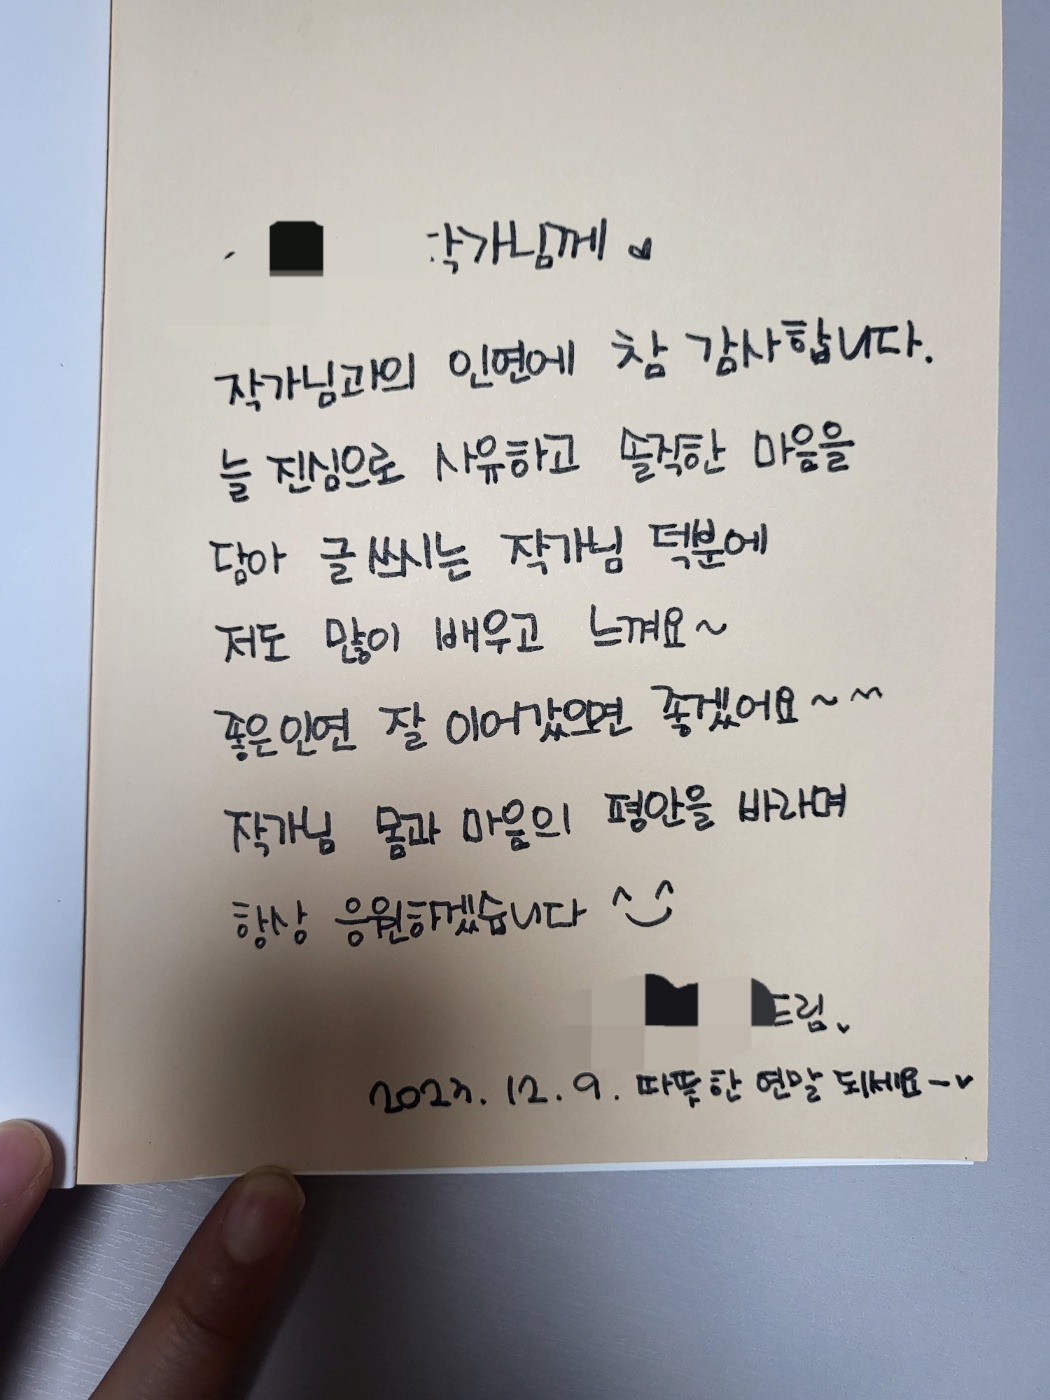 작가님께 ♥
작가님과의 인연에 참 감사합니다.
늘 진심으로 사유하고 솔직한 마음을
담아 글 쓰시는 작가님 덕분에
저도 많이 배우고 느껴요~
좋은인연 잘 이어갔으면 좋겠어요~^^
작가님 몸과 마음의 평안을 바라며
항상 응원하겠습니다 ^‿^
드림.
2023. 12. 9. 따뜻한 연말 되세요~♥